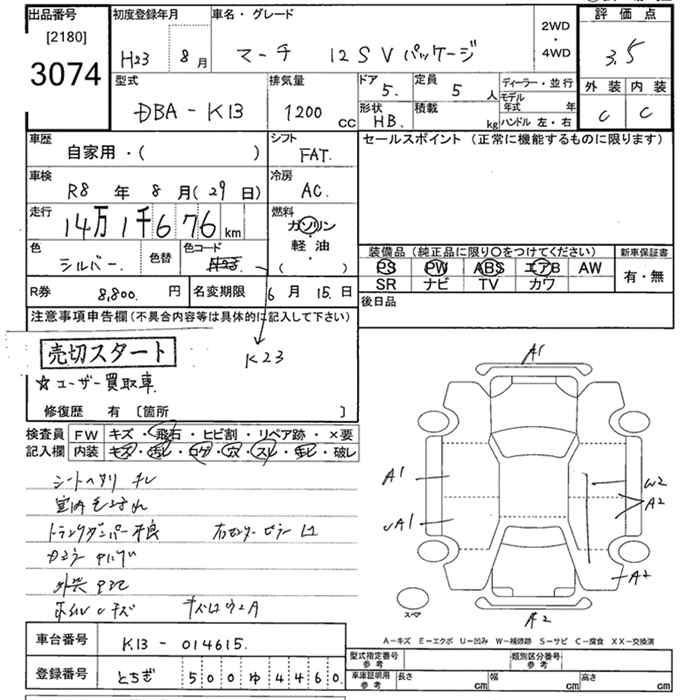 出品番号
[2180]
3074
初度登録年月
H23 8月
車名・グレード
マーチ 12SVパッケージ
2WD
・
4WD
評価点
3.5
外装 内装
C C
型式
DBA-K13
排気量
1200 CC
ドア
5.
定員
5人
形状
HB.
積載
kg
ディーラー・並行
モデル年式 年
ハンドル 左・右
車歴
自家用・( )
シフト
FAT.
セールスポイント (正常に機能するものに限ります)
車検
R8年 8月(29日)
冷房
AC.
走行
14万1千676km
燃料
ガソリン
軽油
( )
色
シルバー.
色替
色コード
K23
装備品(純正品に限り○をつけてください)
PS PW ABS エアB AW
SR ナビ TV カワ
新車保証書
有・無
後日品
R券
8,800.円
名変期限
6月15日
注意事項申告欄(不具合内容等は具体的に記入して下さい)
売切スタート
☆ユーザー買取車
修復歴 有 [箇所 ]
検査員記入欄
FW キズ・飛石・ヒビ割・リペア跡・×要
内装 キズ・汚レ・コゲ・穴・スレ・キレ・破レ
シートヘタリ
トランクダンパー不良
A1
A1
A1
W2
A2
A2
A2
スマ
A-キズ E-エクボ U-凹み W-補修跡 S-サビ C-腐食 XX-交換済
車台番号
K13-014615.
登録番号
とちぎ 500ゆ4460
型式指定番号
参考
類別区分番号
参考
車庫証明用
参考
長さ cm
幅 cm
高さ cm